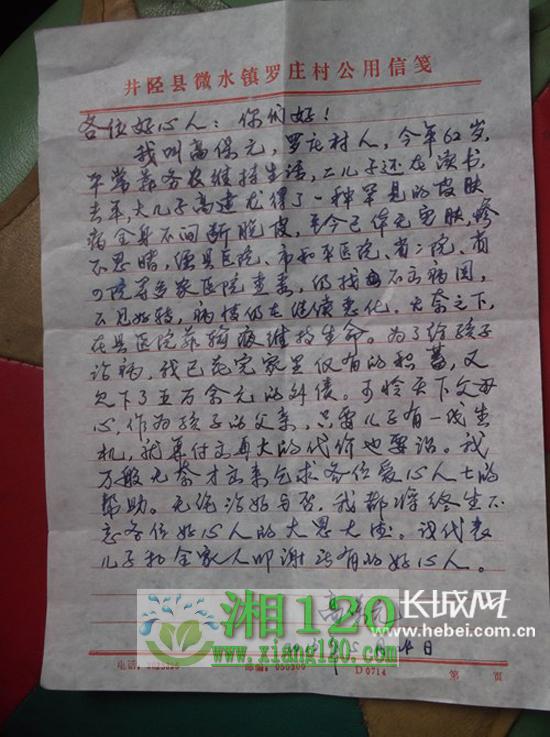 井陉县微水镇罗庄村公用信笺
各位好心人：你们好！
我叫高保元，罗庄村人，今年62岁，
平常靠务农维持生活，二儿子还在读书，
去年，大儿子高建龙得了一种罕见的皮肤
病全身不间断脱皮，至今已体无完肤，惨
不忍睹，经县医院、市和平医院、省二院、省
四院等多家医院查看，仍找不出病因，
不见好转，病情仍在继续恶化。无奈之下，
在县医院靠输液维持生命。为了给孩子
治病，我已花完家里仅有的积蓄，又
欠下了五万余元的外债。可怜天下父母
心，作为孩子的父亲，只要儿子有一线生
机，就算付出再大的代价也要治。我
万般无奈才出来乞求各位爱心人士的
帮助。无论治好与否，我都将终生不
忘各位好心人的大恩大德。谨代表
儿子和全家人叩谢所有的好心人。
高保元
湘120
www.xiang120.com
长城网
www.hebei.com.cn
月 日
电话：
邮编：050300
D0714
第 页